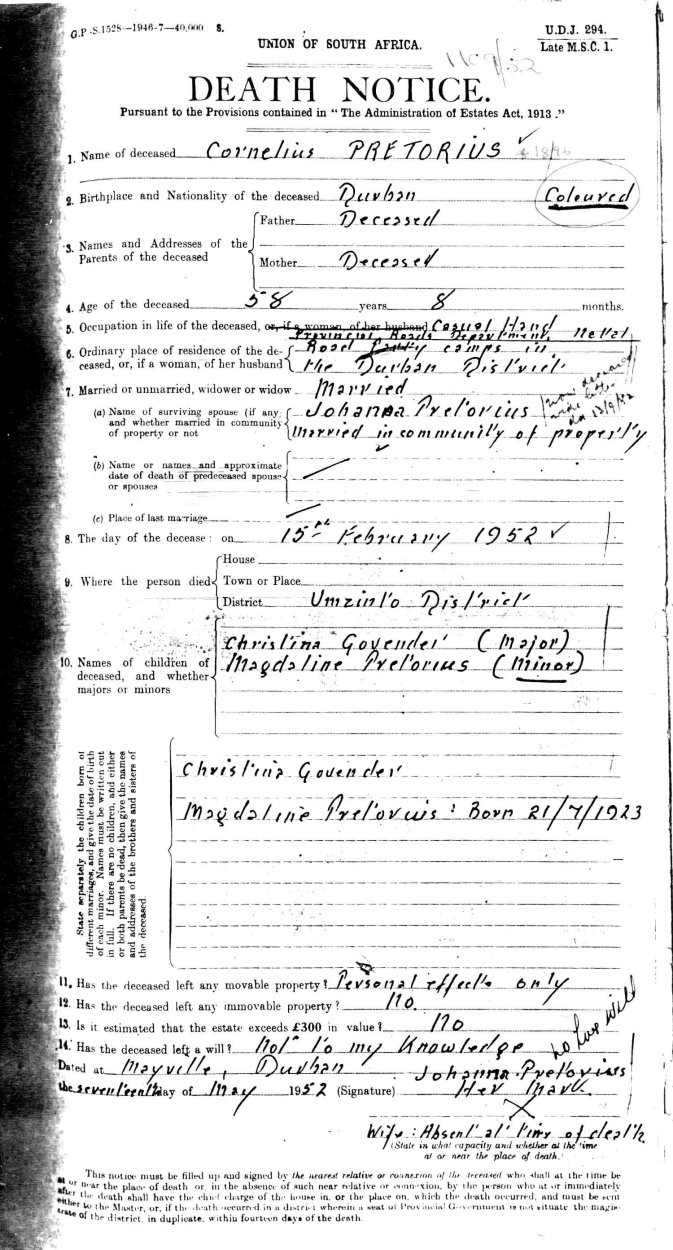 G.P.-S.1528—1946-7—40,000 S.
U.D.J. 294.
Late M.S.C. 1.
UNION OF SOUTH AFRICA.
DEATH NOTICE.
Pursuant to the Provisions contained in "The Administration of Estates Act, 1913."
1. Name of deceased Cornelius PRETORIUS
2. Birthplace and Nationality of the deceased Durban Coloured
3. Names and Addresses of the Parents of the deceased
Father Deceased
Mother Deceased
4. Age of the deceased 58 years 8 months.
5. Occupation in life of the deceased, or, if a woman, of her husband Casual Hand
Provincial Roads Department, Natal
6. Ordinary place of residence of the deceased, or, if a woman, of her husband
Road Party camps in
the Durban District
7. Married or unmarried, widower or widow Married
(a) Name of surviving spouse (if any) and whether married in community of property or not
Johanna Pretorius
Married in community of property
now deceased
(b) Name or names and approximate date of death of predeceased spouse or spouses
(c) Place of last marriage
8. The day of the decease: on 15th February 1952
9. Where the person died
House
Town or Place
District Umzinto District
10. Names of children of deceased, and whether majors or minors
Christina Govender (Major)
Magdaline Pretorius (Minor)
State separately the children born of
different marriages, and give the date of birth
of each minor. Names must be written out
in full. If there are no children, and either
or both parents be dead, then give the names
and addresses of the brothers and sisters of
the deceased.
Christina Govender
Magdaline Pretorius: Born 21/7/1923
11. Has the deceased left any movable property? Personal effects only
12. Has the deceased left any immovable property? No.
13. Is it estimated that the estate exceeds £300 in value? No
14. Has the deceased left a will? Not to my Knowledge
Dated at Mayville, Durban Johanna Pretorius
the seventeenth day of May 1952 (Signature) Her Mark.
X
Wife: Absent at time of death.
(State in what capacity and whether at the time
at or near the place of death.)
This notice must be filled up and signed by the nearest relative or connexion of the deceased who shall at the time be
at or near the place of death or, in the absence of such near relative or connexion, by the person who at or immediately
after the death shall have the chief charge of the house in, or the place on, which the death occurred, and must be sent
either to the Master, or, if the death occurred in a district wherein a seat of Provincial Government is not situate the magis-
trate of the district, in duplicate, within fourteen days of the death.